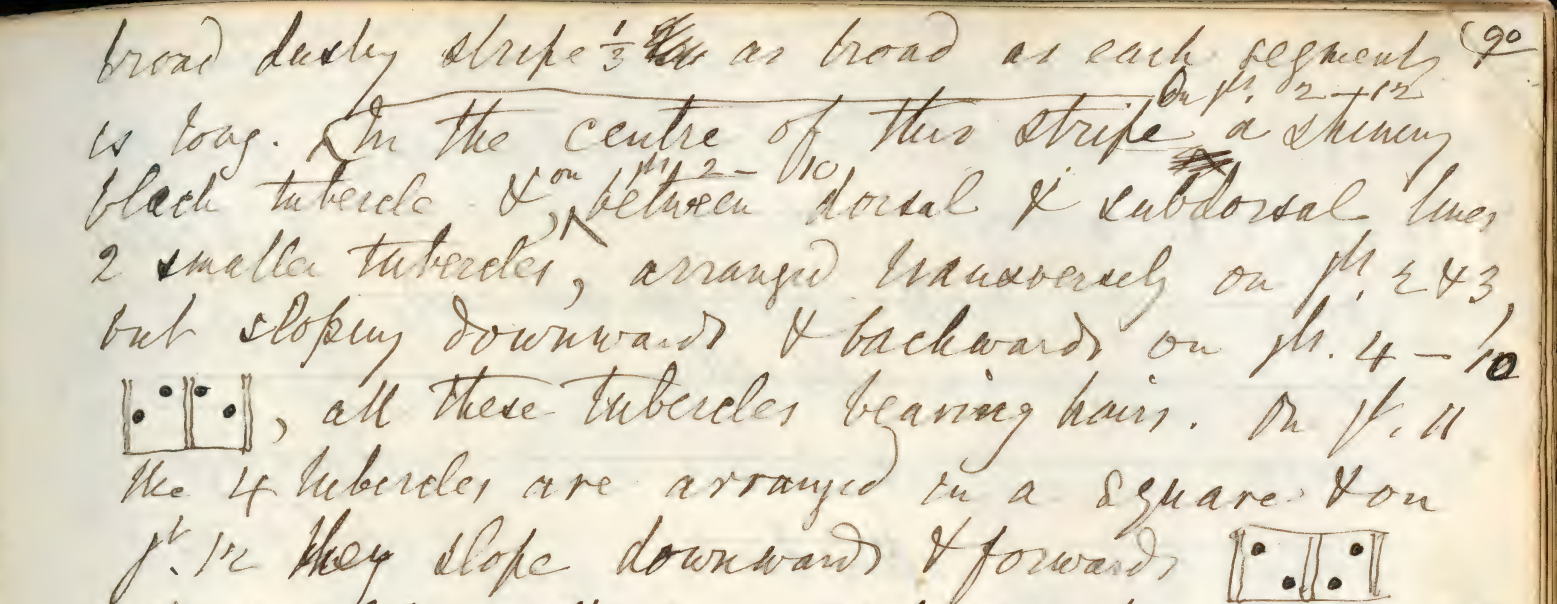 broad dusky stripe 1/3 as broad as each segment (90
is long. In the centre of this stripe on jt. 2-12 a shining
black tubercle &, on jts. 2-10 between dorsal & subdorsal lines
2 smaller tubercles, arranged transversely on jts. 2 & 3,
but sloping downwards & backwards on jts. 4-10
, all these tubercles bearing hairs. On jt. 11
the 4 tubercles are arranged in a square & on
jt. 12 they slope downwards & forwards